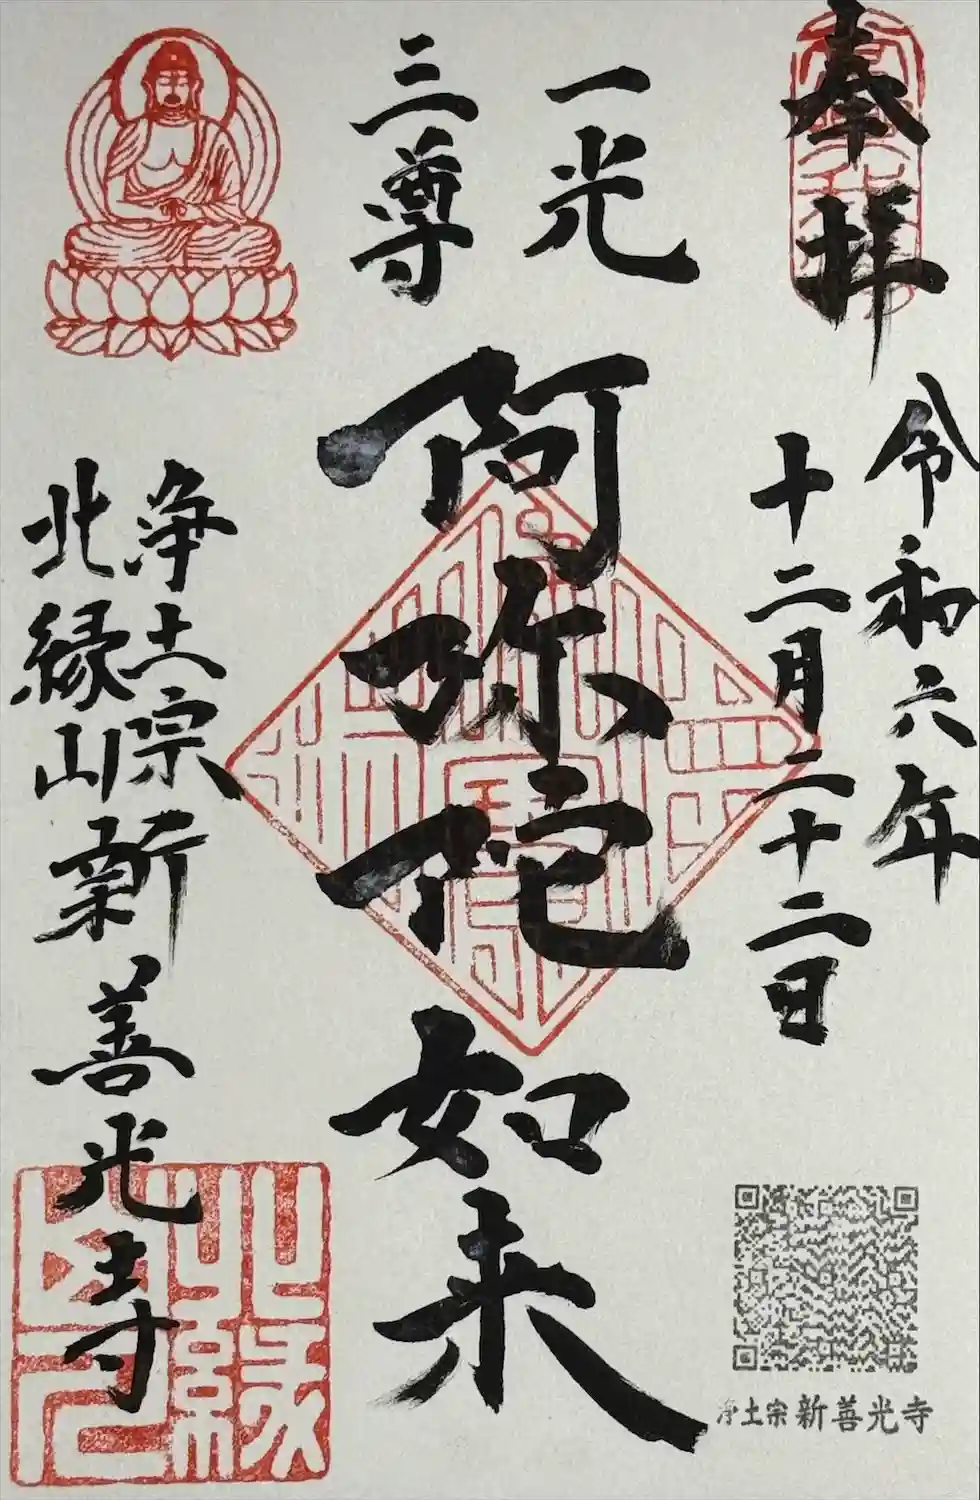 奉拝
令和六年
十二月二十二日
一光
三尊
阿弥陀如来
浄土宗
北縁山新善光寺
北縁
浄土宗新善光寺